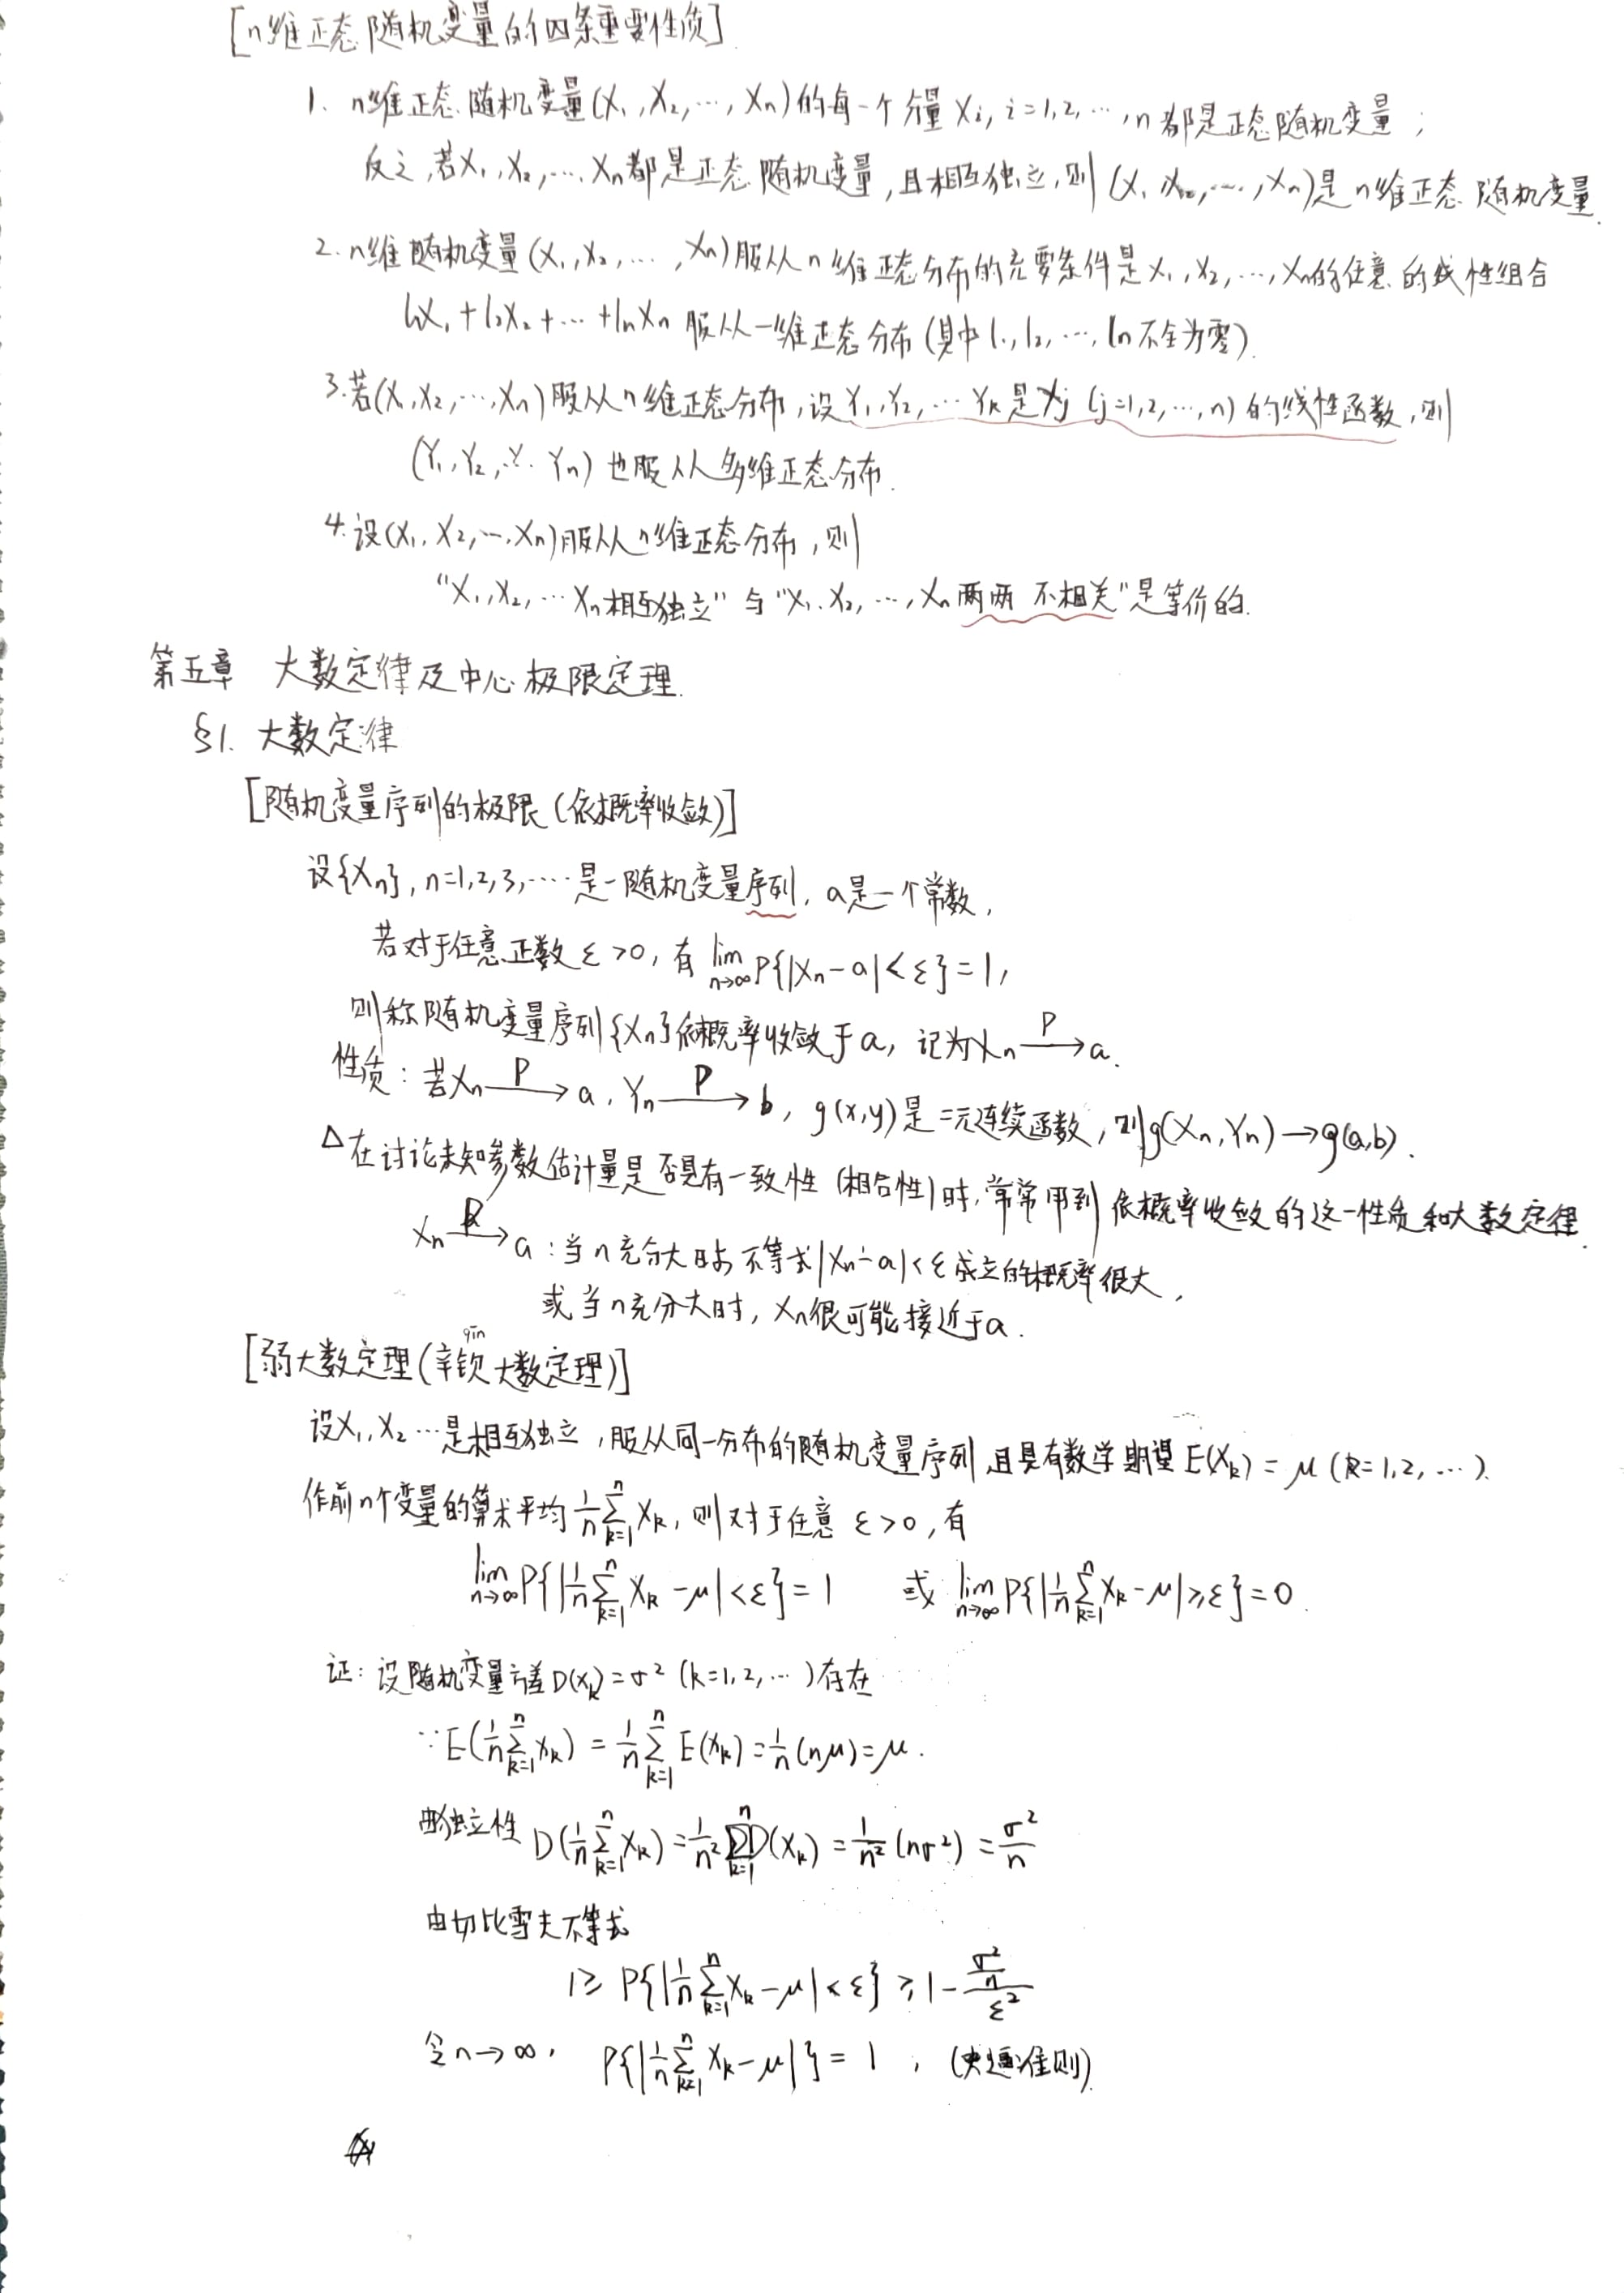 [n维正态随机变量的四条重要性质]
1. n维正态随机变量(X₁,X₂,…,Xn)的每一个分量Xi, i=1,2,…,n都是正态随机变量;
反之,若X₁,X₂,…,Xn都是正态随机变量,且相互独立,则(X₁,X₂,…,Xn)是n维正态随机变量.
2. n维随机变量(X₁,X₂,…,Xn)服从n维正态分布的充要条件是X₁,X₂,…,Xn的任意的线性组合
l₁X₁+l₂X₂+…+lnXn 服从一维正态分布(其中l₁,l₂,…,ln不全为零).
3.若(X₁,X₂,…,Xn)服从n维正态分布,设Y₁,Y₂,…Yk是Xj (j=1,2,…,n)的线性函数,则
(Y₁,Y₂,…Yn)也服从多维正态分布.
4.设(X₁,X₂,…,Xn)服从n维正态分布,则
“X₁,X₂,…Xn相互独立”与“X₁,X₂,…,Xn两两不相关”是等价的.
第五章 大数定律及中心极限定理.
§1. 大数定律
[随机变量序列的极限(依概率收敛)]
设{Xn}, n=1,2,3,……是一随机变量序列, a是一个常数,
若对于任意正数ε>0,有 lim n→∞ P{|Xn-a|<ε}=1,
则称随机变量序列{Xn}依概率收敛于a,记为Xn —P→ a.
性质:若Xn —P→ a, Yn —P→ b, g(x,y)是二元连续函数,则g(Xn,Yn)→g(a,b).
Δ在讨论未知参数估计量是否具有一致性(相合性)时,常常用到依概率收敛的这一性质和大数定律.
Xn —P→ a:当n充分大时,不等式|Xn-a|<ε成立的概率很大,
或当n充分大时, Xn很可能接近于a.
qīn
[弱大数定理(辛钦大数定理)]
设X₁,X₂…是相互独立,服从同一分布的随机变量序列,且具有数学期望E(Xk)=μ (k=1,2,…).
作前n个变量的算术平均 1/n ∑ⁿₖ₌₁ Xk,则对于任意ε>0,有
lim n→∞ P{|1/n ∑ⁿₖ₌₁ Xk-μ|<ε}=1 或 lim n→∞ P{|1/n ∑ⁿₖ₌₁ Xk-μ|≥ε}=0.
证:设随机变量方差D(Xk)=σ² (k=1,2,…)存在
∵E(1/n ∑ⁿₖ₌₁ Xk) = 1/n ∑ⁿₖ₌₁ E(Xk) = 1/n (nμ)=μ.
由独立性 D(1/n ∑ⁿₖ₌₁ Xk) = 1/n² ∑ⁿₖ₌₁ D(Xk) = 1/n² (nσ²) = σ²/n
由切比雪夫不等式
1≥ P{|1/n ∑ⁿₖ₌₁ Xk-μ|<ε} ≥ 1- (σ²/n)/ε²
令n→∞, P{|1/n ∑ⁿₖ₌₁ Xk-μ|}=1, (夹逼准则).